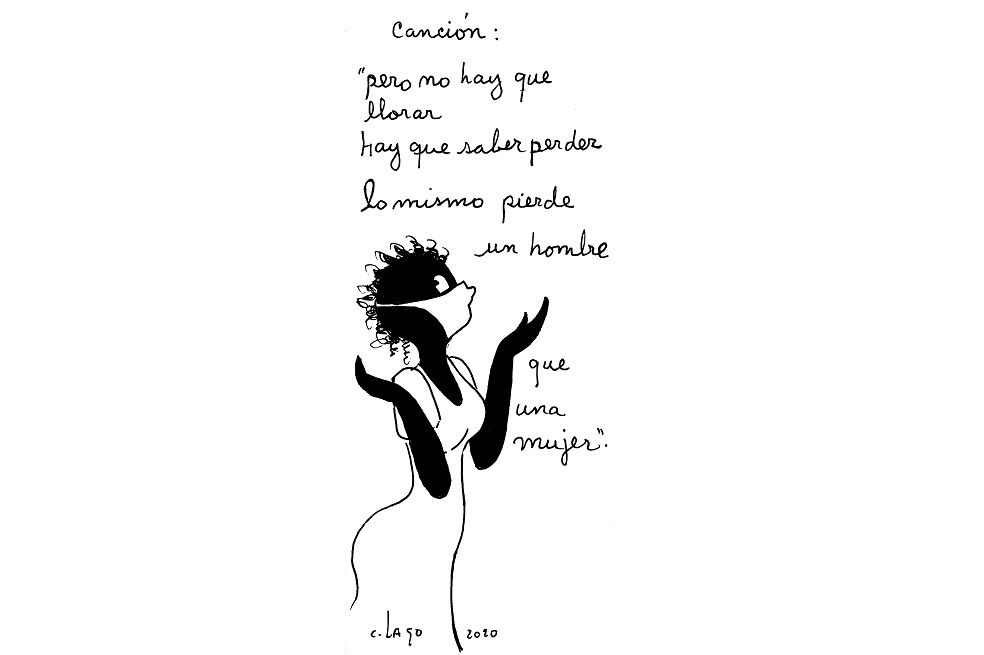 Canción:
"pero no hay que
llorar
hay que saber perder
lo mismo pierde
un hombre
que
una
mujer".
C. LAGO 2020